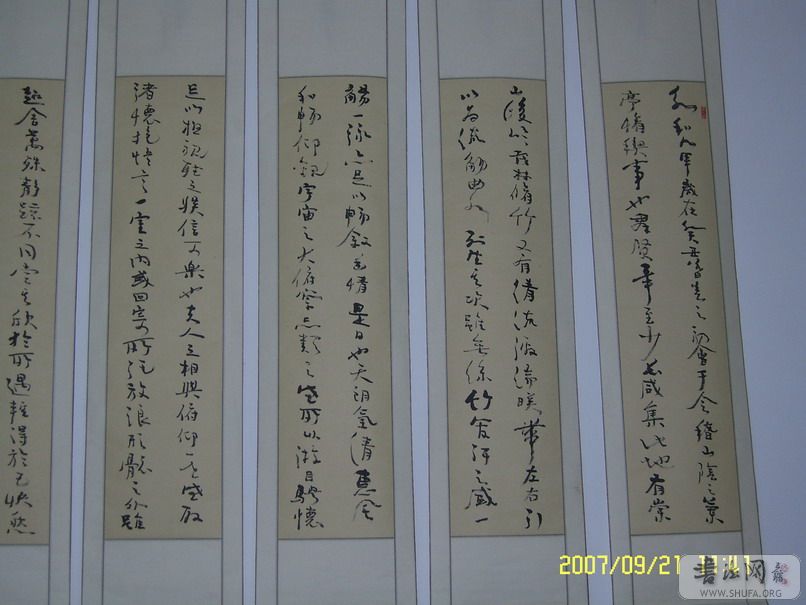 永和九年歲在癸丑暮春之初會于會稽山陰之蘭
亭脩稧事也羣賢畢至少長咸集此地有崇
山峻領茂林脩竹又有清流激湍暎帶左右引
以為流觴曲水列坐其次雖無絲竹管弦之盛一
觴一詠亦足以暢敘幽情是日也天朗氣清惠風
和暢仰觀宇宙之大俯察品類之盛所以遊目騁懷
足以極視聽之娛信可樂也夫人之相與俯仰一世或取
諸懷抱悟言一室之內或因寄所託放浪形骸之外雖
趣舍萬殊靜躁不同當其欣於所遇輒得於己快然
2007/09/21
书法网
WWW.SHUFA.ORG